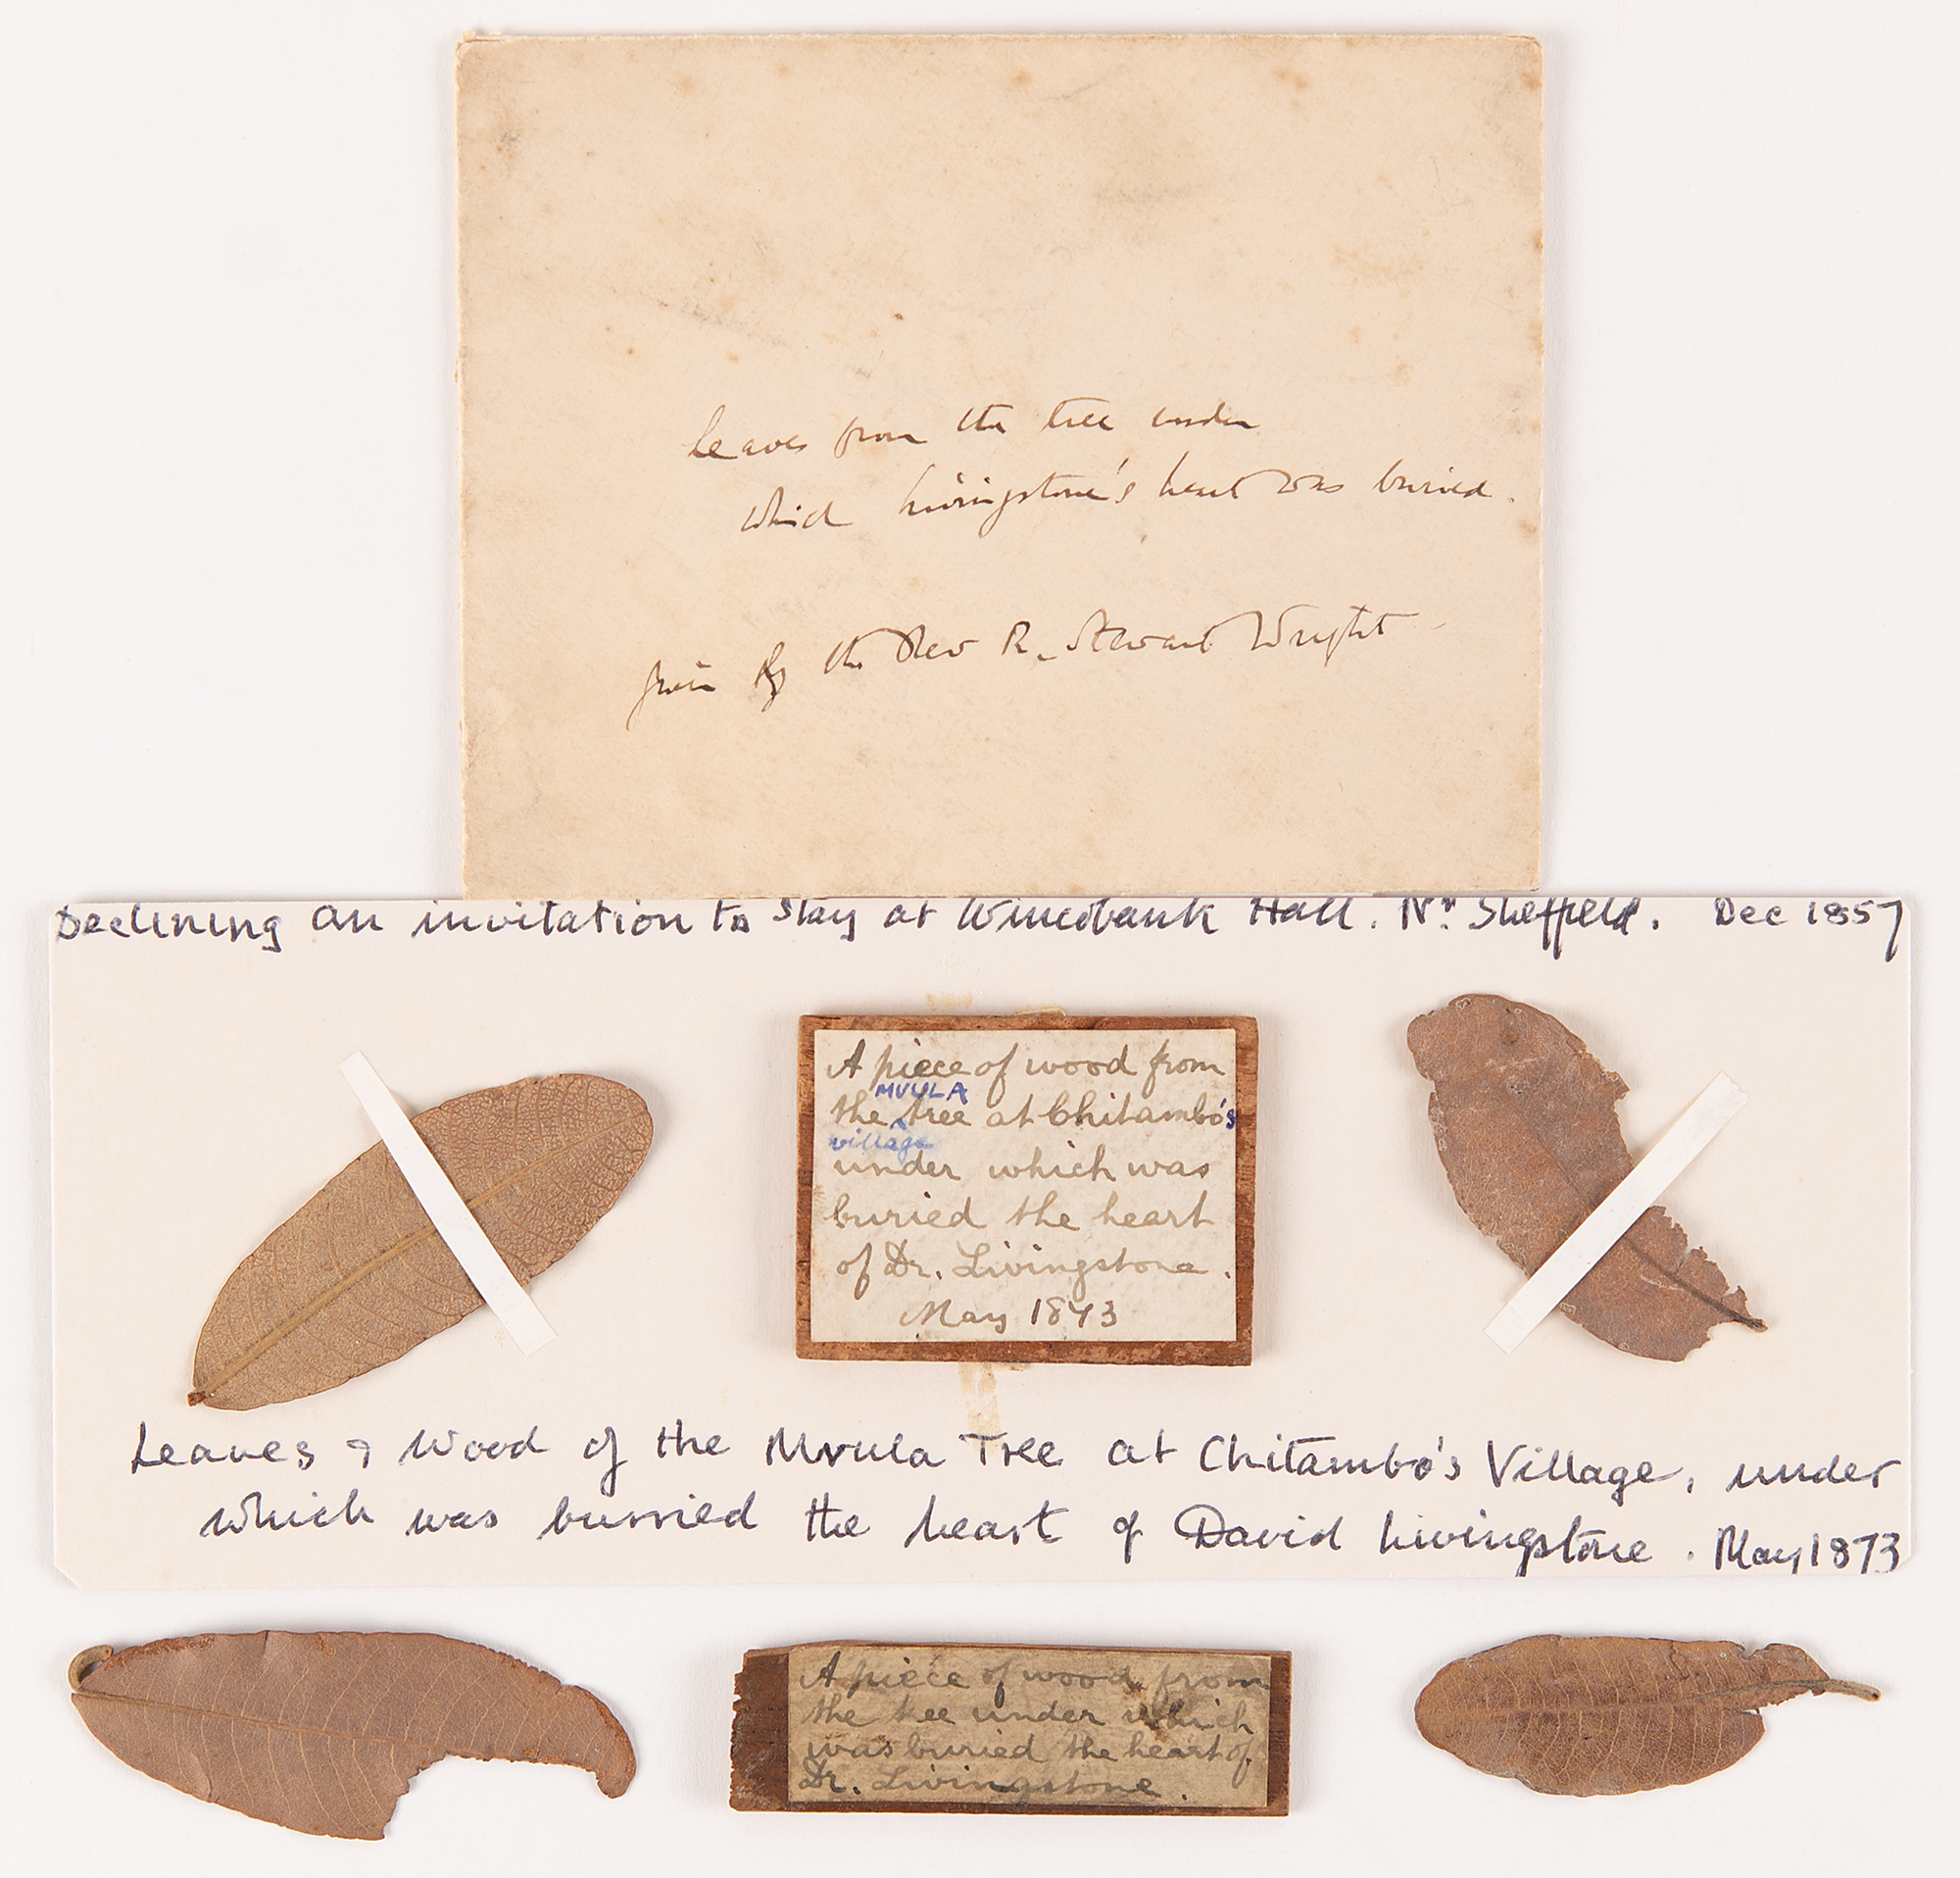 Leaves from the tree under
which Livingstone's heart was buried.
given by the Rev R. Stewart Wright
Declining an invitation to stay at Wincobank Hall. Nr. Sheffield. Dec 1857
A piece of wood from
MVULA
the tree at Chitambo's
village
under which was
buried the heart
of Dr. Livingstone.
May 1873
Leaves & Wood of the Mvula Tree at Chitambo's Village, under
which was burried the heart of David Livingstone. May 1873
A piece of wood from
the tree under which
was buried the heart of
Dr. Livingstone.